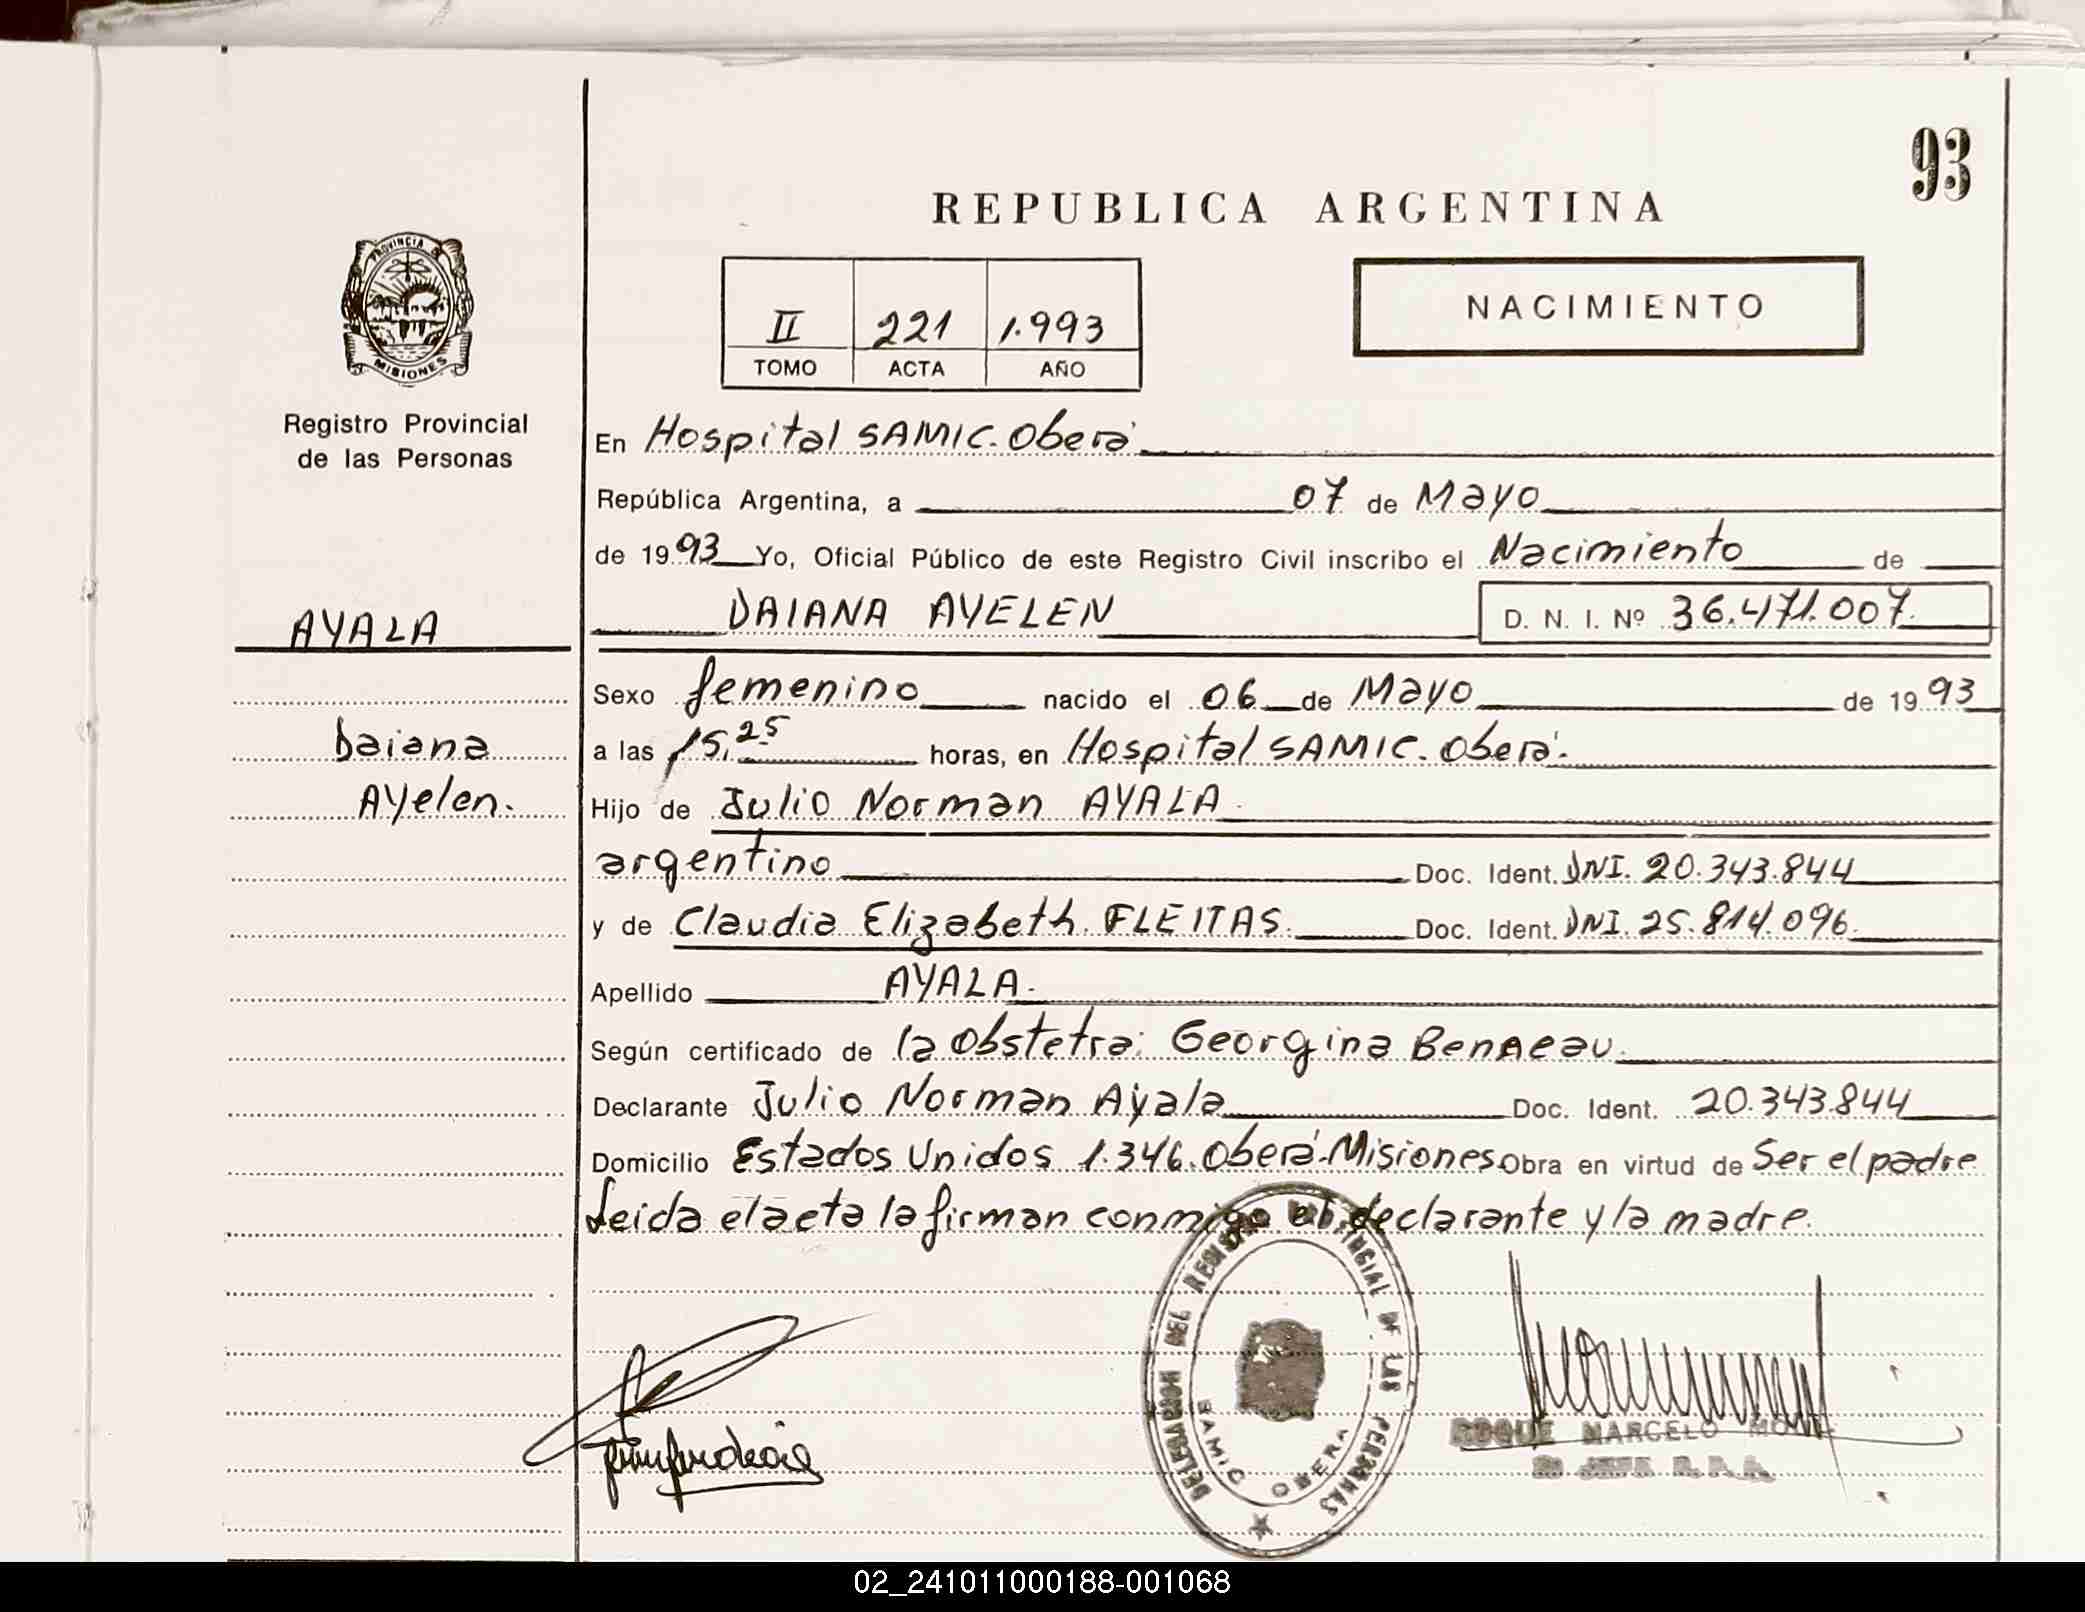 93
REPUBLICA ARGENTINA
PROVINCIA DE
MISIONES
II 221 1.993
TOMO ACTA AÑO
NACIMIENTO
Registro Provincial
de las Personas
En Hospital SAMIC. Oberá
República Argentina, a 07 de Mayo
de 1993 Yo, Oficial Público de este Registro Civil inscribo el Nacimiento de
AYALA
DAIANA AYELEN D. N. I. Nº 36.471.007.
Sexo femenino nacido el 06 de Mayo de 1993
Daiana
a las 15,25 horas, en Hospital SAMIC. Oberá.
Ayelen.
Hijo de Julio Norman AYALA.
argentino Doc. Ident. DNI. 20.343.844
y de Claudia Elizabeth FLEITAS. Doc. Ident. DNI. 25.814.096.
Apellido AYALA.
Según certificado de la Obstetra: Georgina
Declarante Julio Norman Ayala Doc. Ident. 20.343.844
Domicilio Estados Unidos 1.346. Oberá. Misiones Obra en virtud de Ser el padre
Leida el acta la firman conmigo el declarante y la madre.
DELEGACION DEL REGISTRO PROVINCIAL DE LAS PERSONAS
SAMIC OBERA
ROQUE MARCELO
02_241011000188-001068